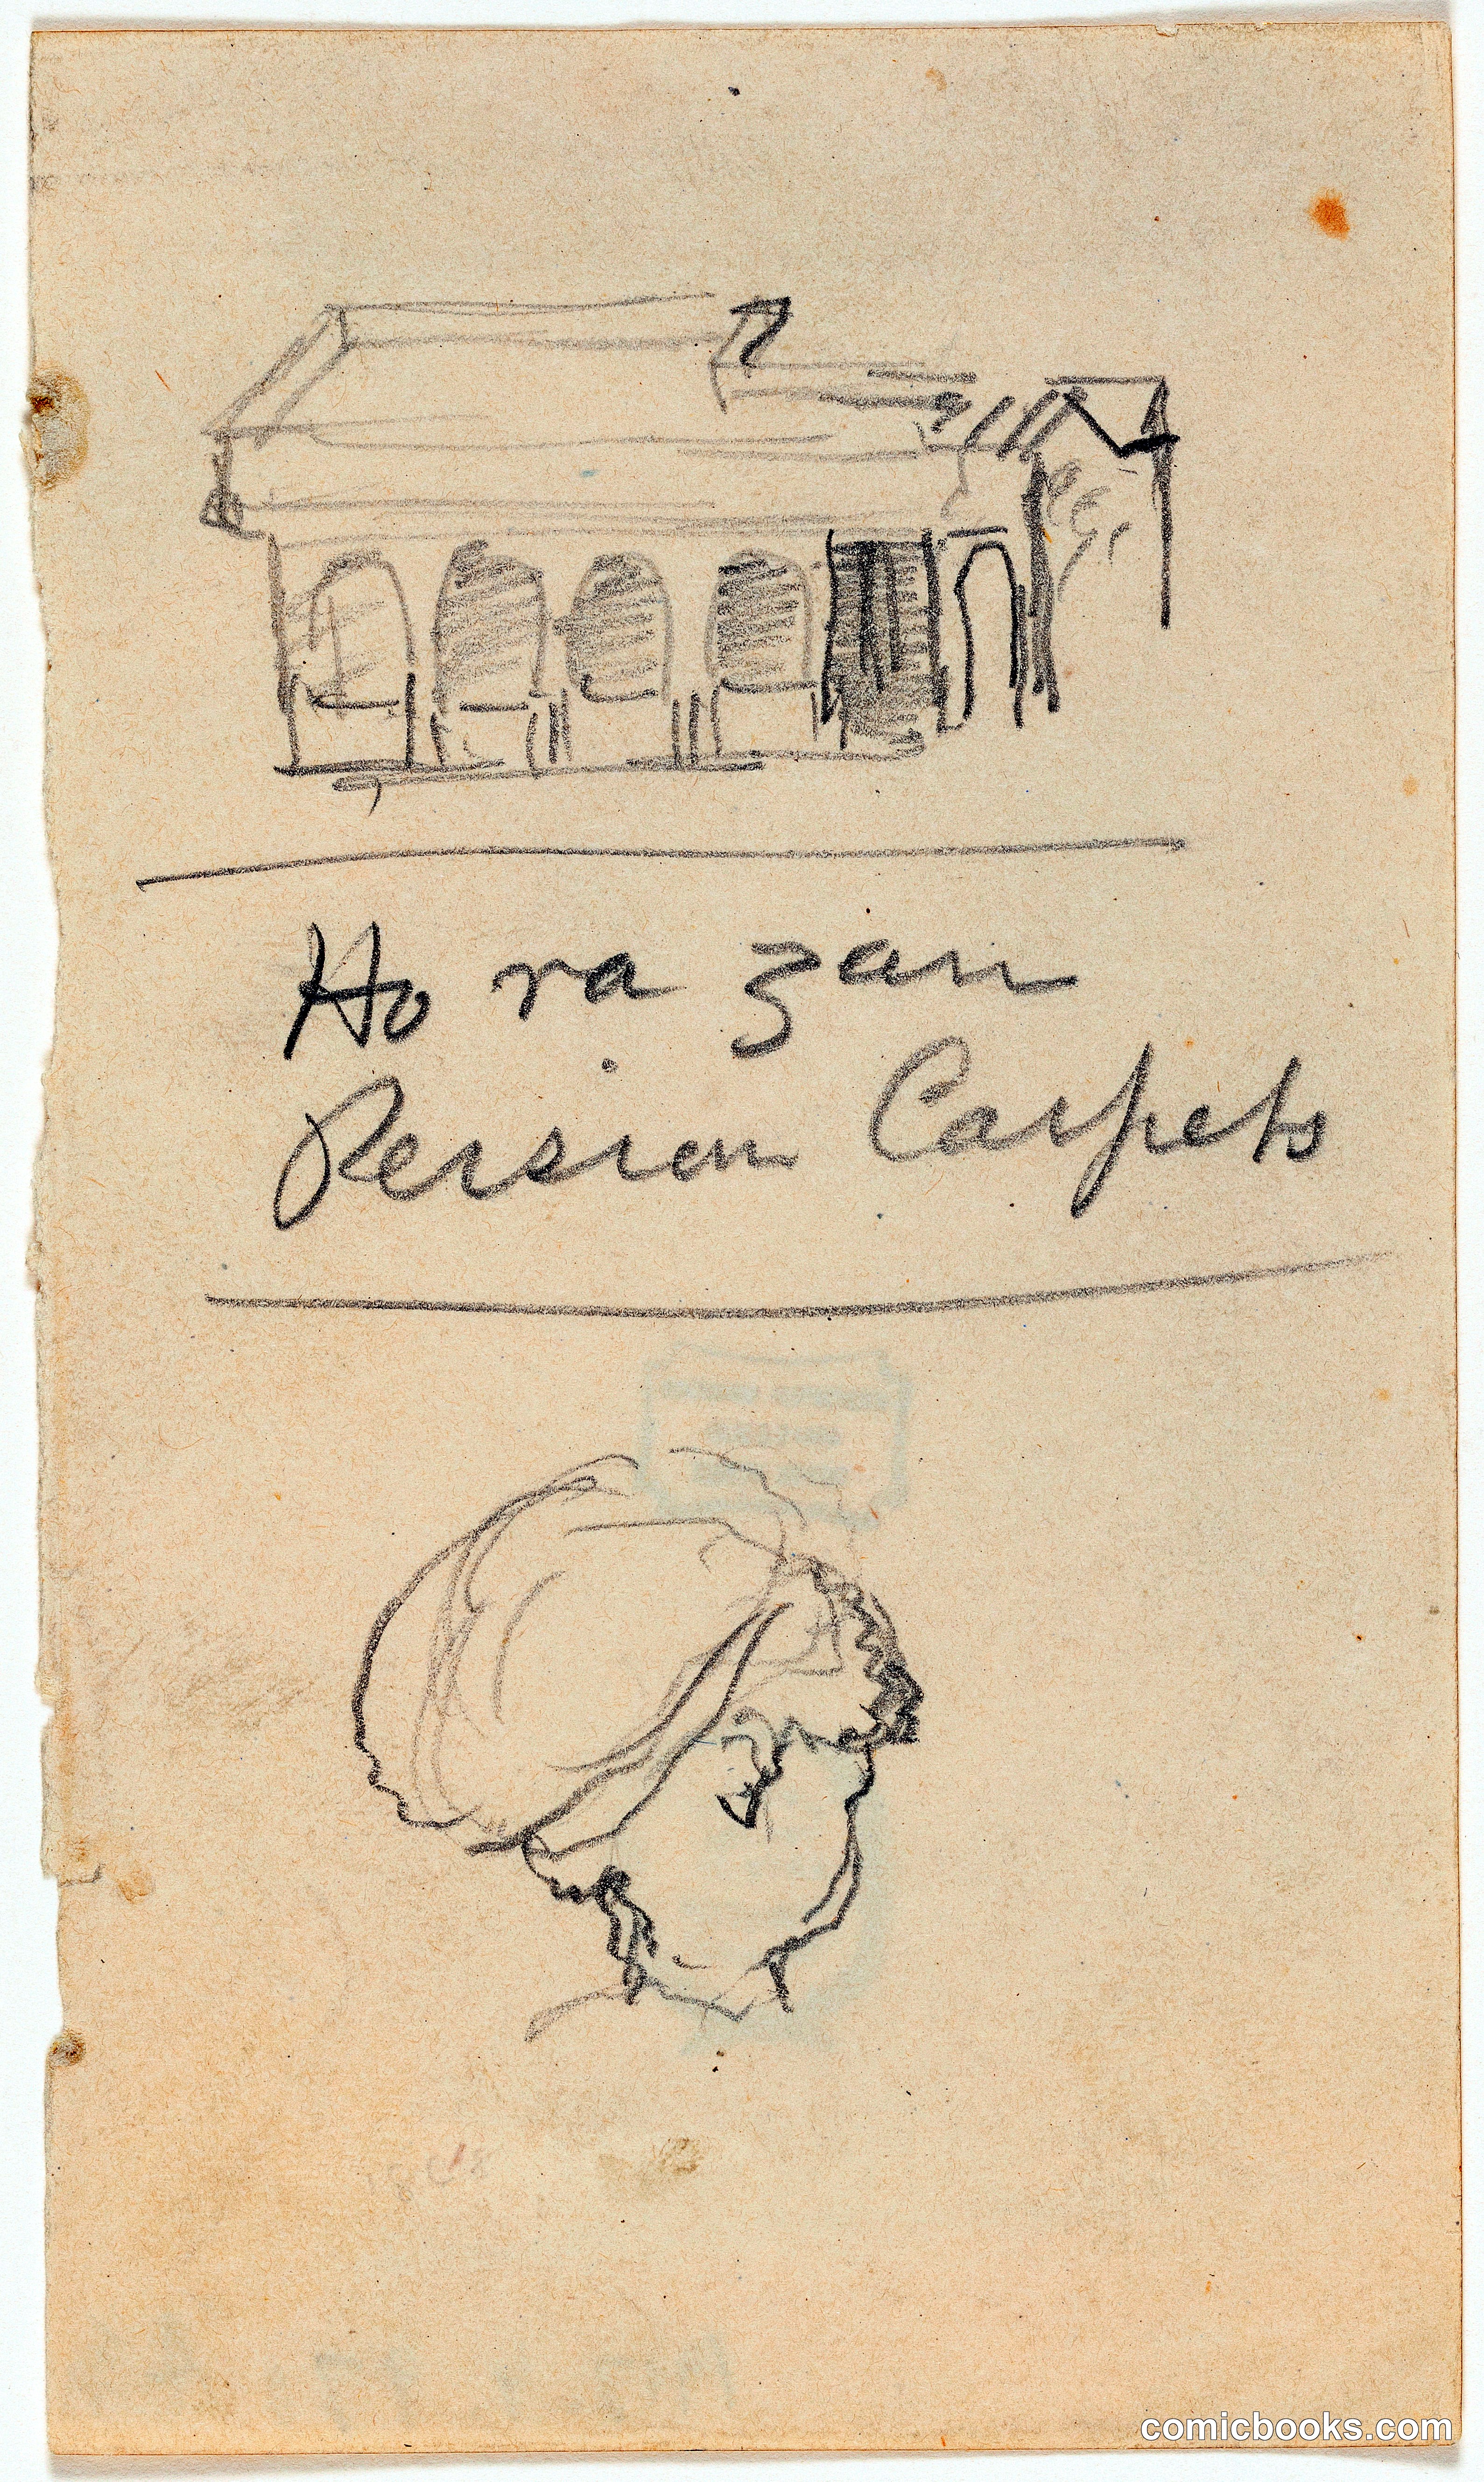 Ho ra zan
Persian Carpets
comicbooks.com